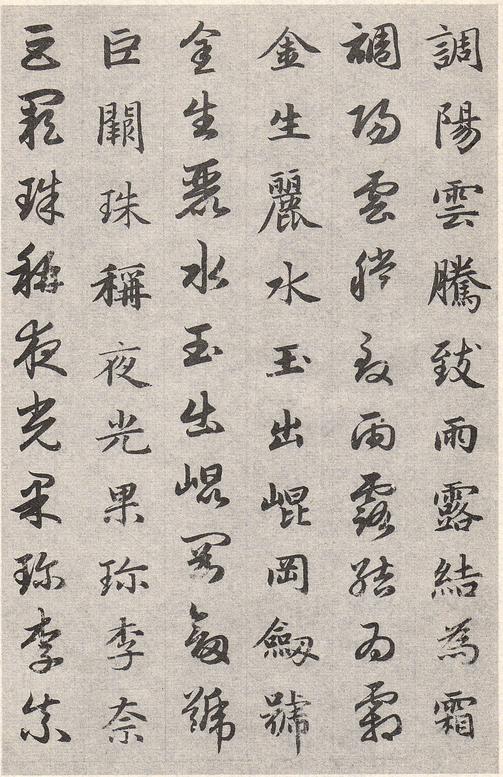 調陽雲騰致雨露結為霜
調陽雲騰致雨露結為霜
金生麗水玉出崐岡劒號
金生麗水玉出崐岡劒號
巨闕珠稱夜光果珎李柰
巨闕珠稱夜光果珎李柰